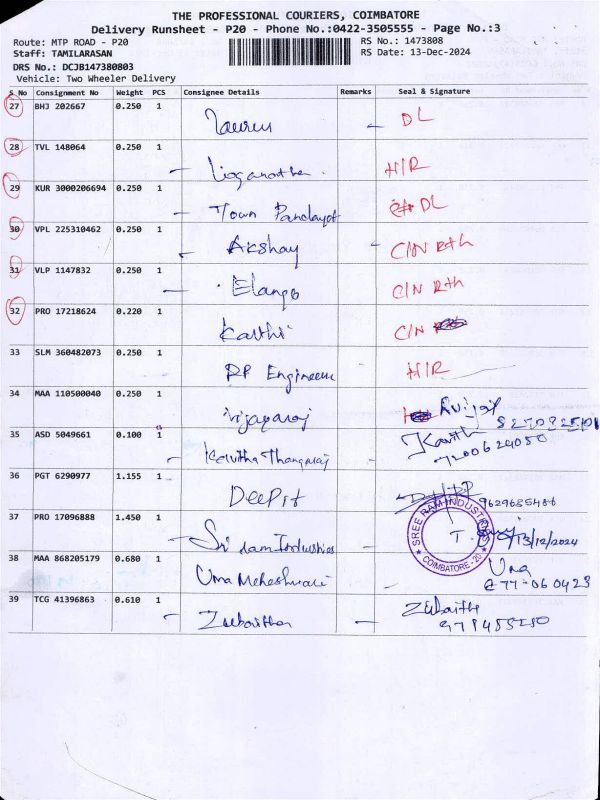 THE PROFESSIONAL COURIERS, COIMBATORE
Delivery Runsheet - P20 - Phone No.:0422-3505555 - Page No.:3
Route: MTP ROAD - P20 RS No.: 1473808
Staff: TAMILARASAN RS Date: 13-Dec-2024
DRS No.: DCJB147380803
Vehicle: Two Wheeler Delivery
S No Consignment No Weight PCS Consignee Details Remarks Seal & Signature
27 BHJ 202667 0.250 1 DL
28 TVL 148064 0.250 1 Loganathan H/R
29 KUR 3000206694 0.250 1 Town Panchayat DL
30 VPL 225310462 0.250 1 Akshay C/N Rth
31 VLP 1147832 0.250 1 Elango C/N Rth
32 PRO 17218624 0.220 1 Karthi C/N
33 SLM 360482073 0.250 1 RP Engineers H/R
34 MAA 110500040 0.250 1 Vijayaraj
35 ASD 5049661 0.100 1 Kavitha Thangaraj Kavith
7200624050
36 PGT 6290977 1.155 1 Deepit 9629685486
37 PRO 17096888 1.450 1 Sri Ram Industries SREE RAM INDUSTRIES COIMBATORE-20 13/12/2024
38 MAA 868205179 0.680 1 Uma Maheshwari Uma
39 TCG 41396863 0.610 1 Zubaitha Zubaitha